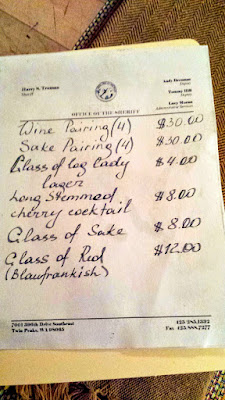 Harry S. Truman
Sheriff
Andy Brennan
Deputy
Tommy Hill
Deputy
Lucy Moran
Administrative Services
OFFICE OF THE SHERIFF
Wine Pairing (4) $30.00
Sake Pairing (4) $30.00
Glass of log lady $4.00
lager
Long Stemmed $8.00
cherry cocktail
Glass of Sake $8.00
Glass of Red $12.00
(Blaufrankish)
Twin Peaks, WA
Fax